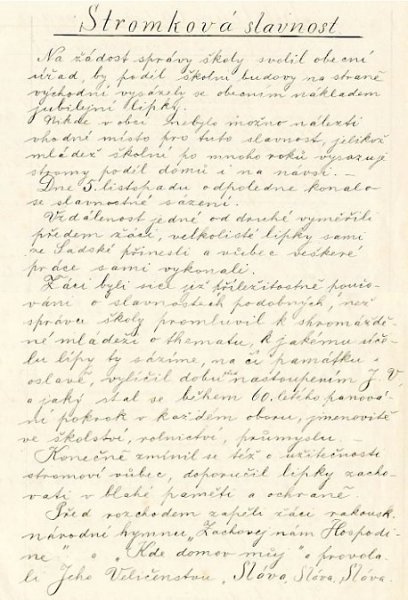 Stromková slavnost.
Na žádost správy školy svolil obecní
úřad, by podél školní budovy na straně
východní vysázely se obecním nákladem
jubilejní lípky.
Nikde v obci nebylo možno nalézti
vhodné místo pro tuto slavnost, jelikož
mládež školní po mnoho roků vysazuje
stromy podél domů i na návsi. –
Dne 5. listopadu odpoledne konalo
se slavnostné sázení.
Vzdálenost jedné od druhé vyměřili
předem žáci, velkolisté lípky sami
ze Sadské přinesli a vůbec veškeré
práce sami vykonali.
Žáci byli sice již příležitostně poučo-
váni o slavnostech podobných, než
správce školy promluvil k shromáždě-
né mládeži o thematu, k jakému úče-
lu lípy ty sázíme, na čí památku a
oslavě, vylíčil dobu nastoupením J. V.
a jaký stal se během 60. letého panová-
ní pokrok v každém oboru, jmenovitě
ve školství, rolnictví, průmyslu. –
Konečně zmínil se též o užitečnosti
stromoví vůbec, doporučil lípky zacho-
vati v blahé paměti a ochraně.
Před rozchodem zapěli žáci rakousk.
národní hymnu „Zachovej nám Hospodi-
ne“ a „Kde domov můj“ a provola-
li Jeho Veličenstvu „Sláva, Sláva, Sláva.